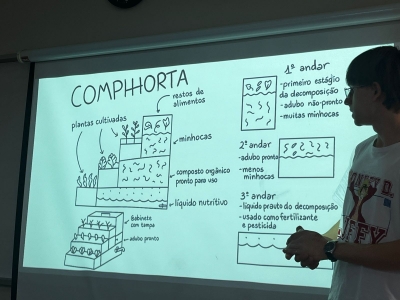 COMPHHORTA
restos de
alimentos
plantas cultivadas
minhocas
composto orgânico
pronto para uso
líquido nutritivo
Gabinete
com tampa
adubo pronto
1º andar
-primeiro estágio
da decomposição
-adubo não-pronto
-muitas minhocas
2º andar
-adubo pronto
-menos
minhocas
3º andar
-líquido prauto do decomposição
-usado como fertilizante
e pesticida